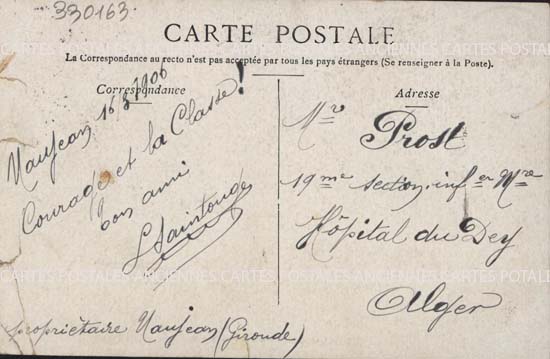 330163
CARTE POSTALE
La Correspondance au recto n'est pas acceptée par tous les pays étrangers (Se renseigner à la Poste).
Correspondance
Naujean 16/8 1906
Courage et la Classe!
bon ami
LSaintouge
propriétaire Naujean (Gironde)
Adresse
Mr
Prost
19me section inf er Mre
Hôpital du Dey
Alger
CARTES POSTALES ANCIENNES CARTES POSTALES ANCIENNES CARTES POSTALES